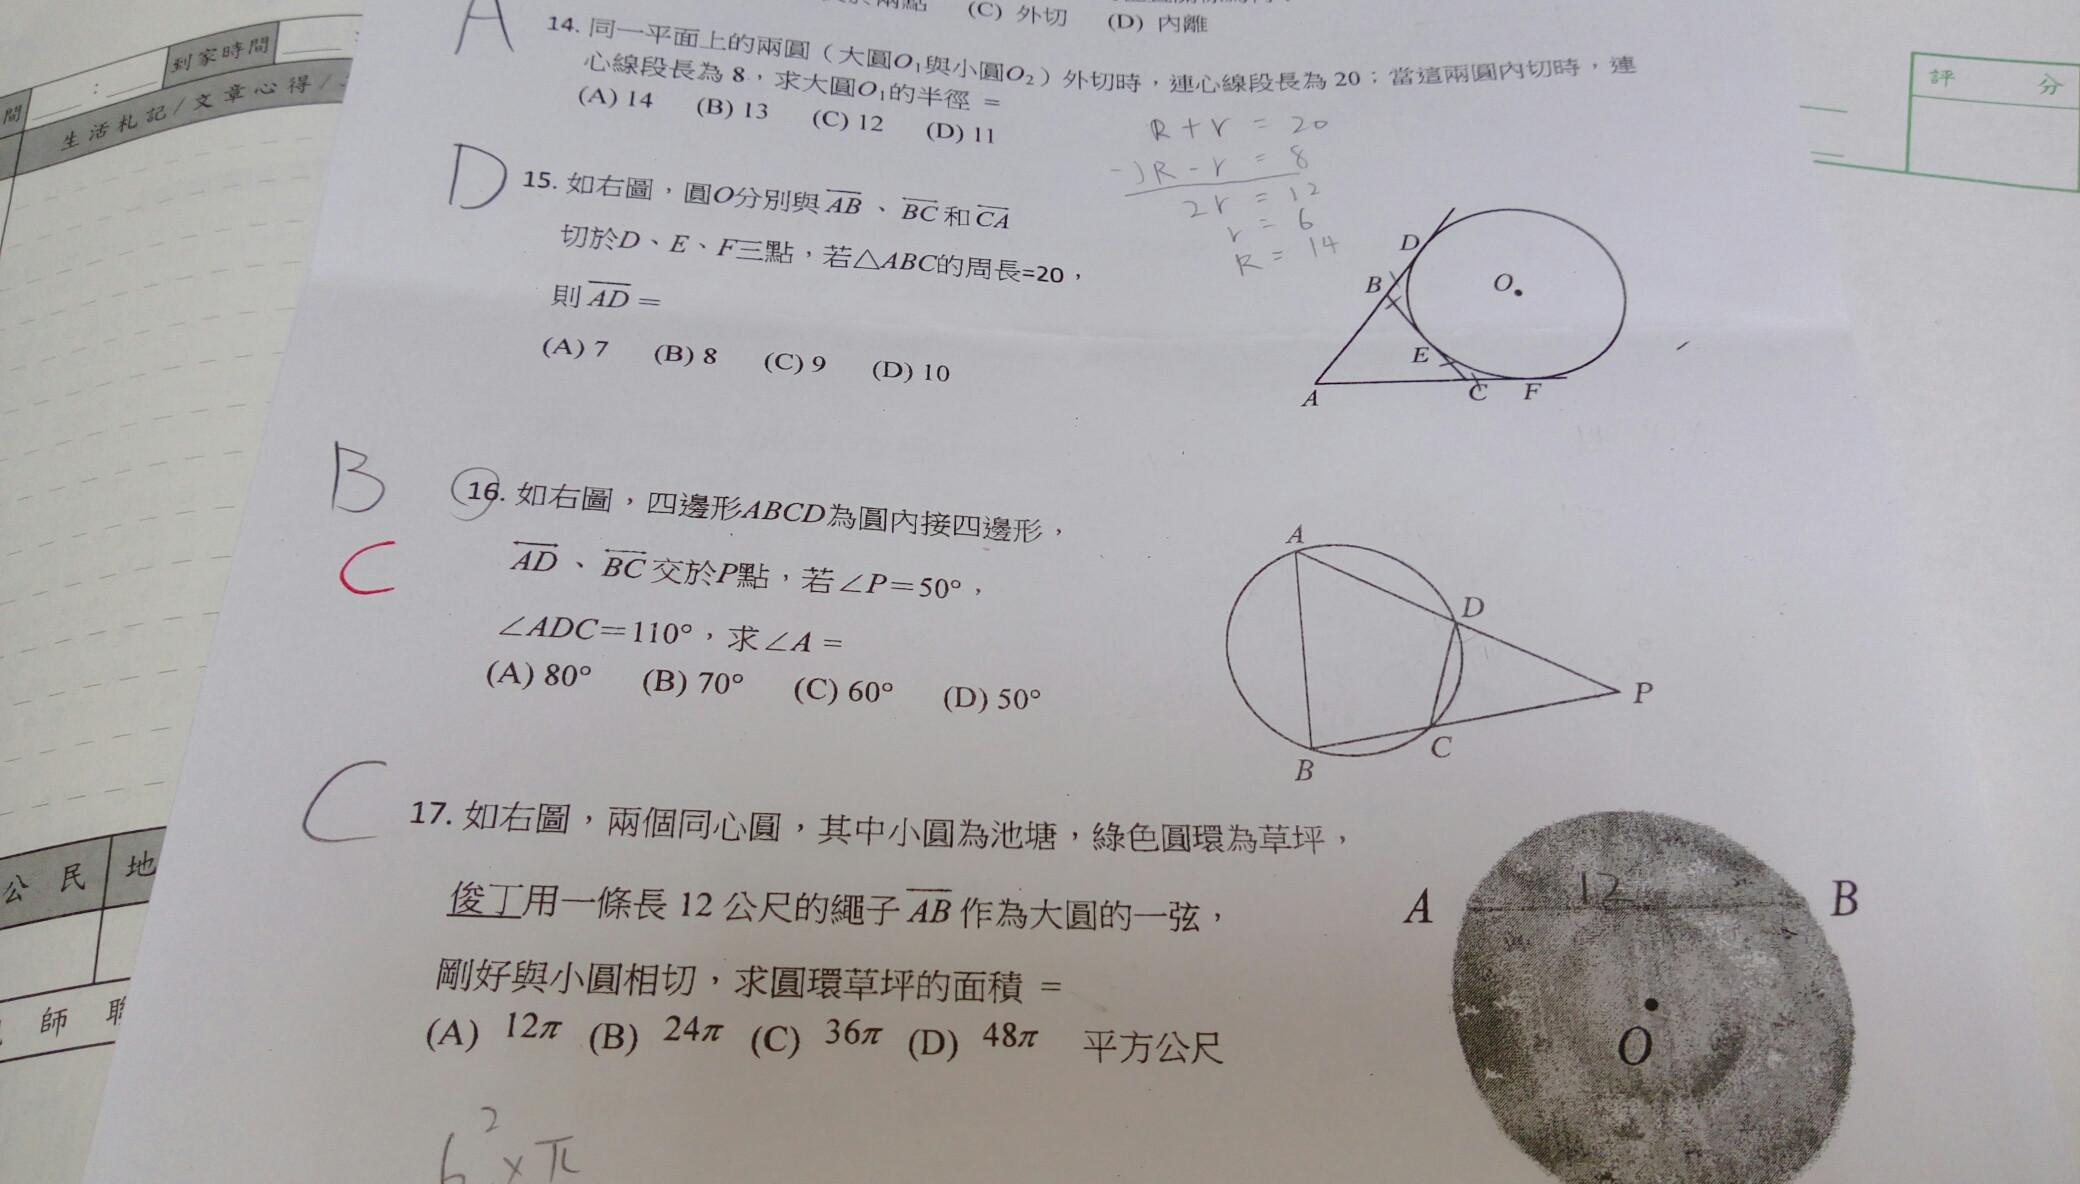 (C) 外切 (D) 內離
A
14. 同一平面上的兩圓（大圓O₁與小圓O₂）外切時，連心線段長為 20；當這兩圓內切時，連
心線段長為 8，求大圓O₁的半徑 =
(A) 14 (B) 13 (C) 12 (D) 11
R + r = 20
-) R - r = 8
2r = 12
r = 6
R = 14
D
15. 如右圖，圓O分別與AB、BC和CA
切於D、E、F三點，若△ABC的周長=20，
則AD =
(A) 7 (B) 8 (C) 9 (D) 10
D
B
O
E
A
C
F
B
C
16. 如右圖，四邊形ABCD為圓內接四邊形，
AD、BC交於P點，若∠P=50°，
∠ADC=110°，求∠A =
(A) 80° (B) 70° (C) 60° (D) 50°
A
D
P
C
B
C
17. 如右圖，兩個同心圓，其中小圓為池塘，綠色圓環為草坪，
俊丁用一條長 12 公尺的繩子 AB 作為大圓的一弦，
剛好與小圓相切，求圓環草坪的面積 =
(A) 12π (B) 24π (C) 36π (D) 48π 平方公尺
A
12
B
O
6² × π
間
到家時間
生活札記/文章心得/
公民
地
師
評分